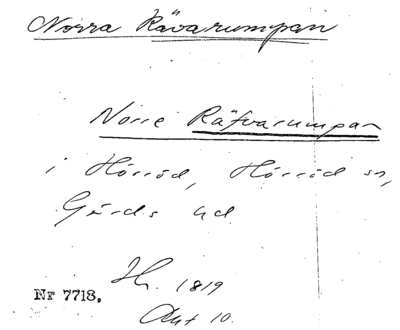 Norra Rävarumpan
Norre Räfvarumpan
i Hörröd, Hörröd sn,
Gärds hd
1819
Nr 7718.
Akt 10.